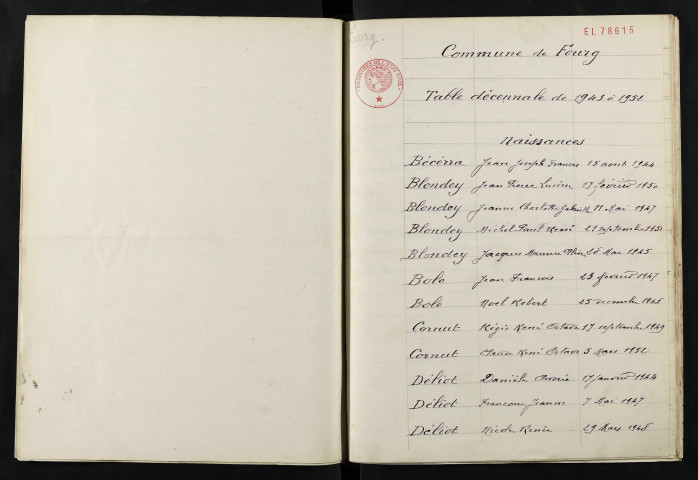 Fourg.
EL 78615
Commune de Fourg
Table décennale de 1943 à 1952
Naissances
Bécérra Jean Joseph Francis 15 aout 1944
Blondey Jean Pierre Lucien 17 février 1950
Blondey Jeanne Charlotte Gabrielle 11 Mai 1947
Blondey Michel Paul René 21 septembre 1951
Blondey Jacques Maurice 28 Mai 1945
Bole Jean Francois 23 février 1947
Bole Noël Robert 25 decembre 1948
Cornut Régis René Octave 17 septembre 1949
Cornut René Octave 5 Mars 1952
Déliot Danièle 17 janvier 1944
Déliot Jeanne 7 Mai 1947
Déliot Nicole Renée 29 Mars 1948